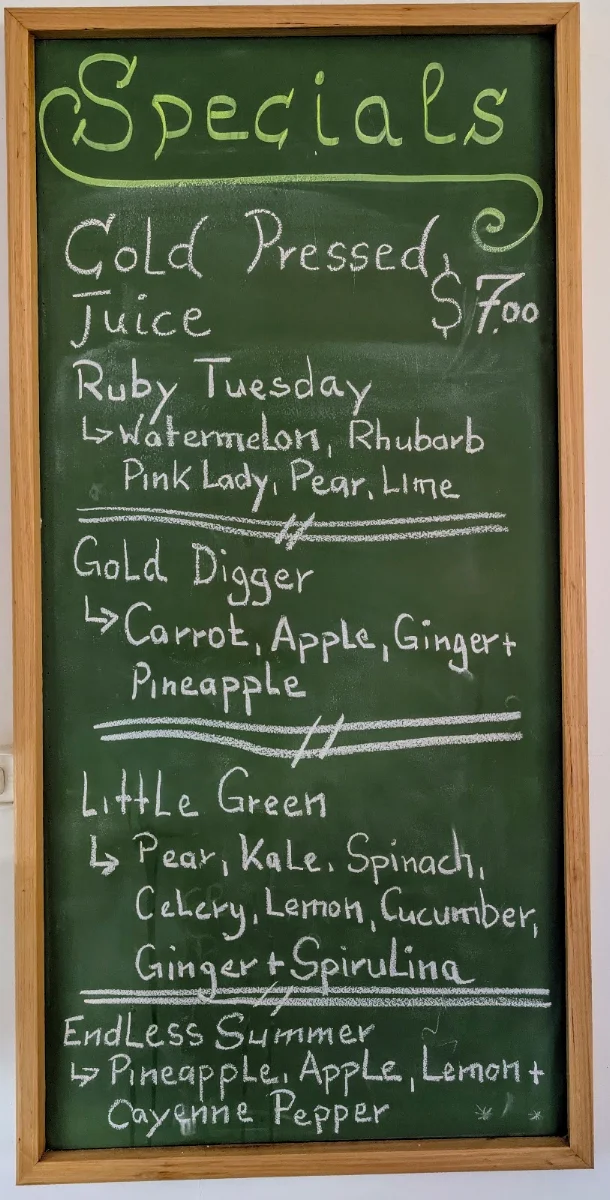 Specials
Cold Pressed,
Juice $7.00
Ruby Tuesday
↳ Watermelon, Rhubarb
Pink Lady, Pear, Lime
Gold Digger
↳ Carrot, Apple, Ginger +
Pineapple
Little Green
↳ Pear, Kale, Spinach,
Celery, Lemon, Cucumber,
Ginger + Spirulina
Endless Summer
↳ Pineapple, Apple, Lemon +
Cayenne Pepper